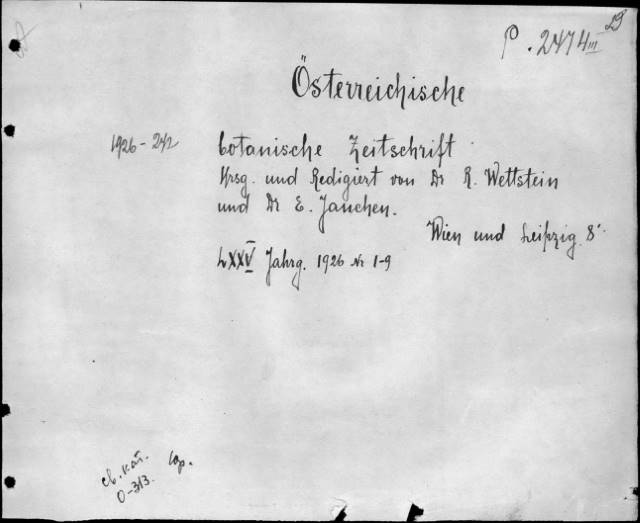 P. 2474 III
Österreichische
1926-242
botanische Zeitschrift
Hrsg. und Redigiert von Dr R. Wettstein
und Dr E. Janchen.
Wien und Leipzig 8°.
LXXV Jahrg. 1926 Nr 1-9
св. кат.
О-313.